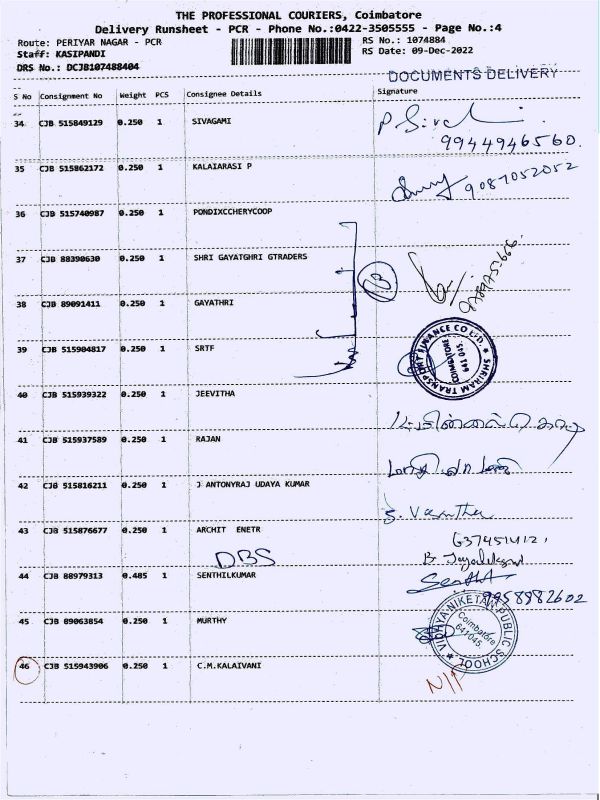 THE PROFESSIONAL COURIERS, Coimbatore
Delivery Runsheet - PCR - Phone No.:0422-3505555 - Page No.:4
Route: PERIYAR NAGAR - PCR RS No.: 1074884
Staff: KASIPANDI RS Date: 09-Dec-2022
DRS No.: DCJB107488404
DOCUMENTS DELIVERY
S No Consignment No Weight PCS Consignee Details Signature
34 CJB 515849129 0.250 1 SIVAGAMI
9944946560.
35 CJB 515862172 0.250 1 KALAIARASI P 9087052052
36 CJB 515740987 0.250 1 PONDIXCCHERYCOOP
37 CJB 88390630 0.250 1 SHRI GAYATGHRI GTRADERS
38 CJB 89091411 0.250 1 GAYATHRI
39 CJB 515904817 0.250 1 SRTF SHRIRAM TRANSPORT FINANCE CO LTD. COIMBATORE 641 045.
40 CJB 515939322 0.250 1 JEEVITHA
41 CJB 515937589 0.250 1 RAJAN
42 CJB 515816211 0.250 1 J ANTONYRAJ UDAYA KUMAR S. Vasantha
43 CJB 515876677 0.250 1 ARCHIT ENETR
DBS
44 CJB 88979313 0.485 1 SENTHILKUMAR
9958882602
45 CJB 89063854 0.250 1 MURTHY VIDHYA NIKETAN PUBLIC SCHOOL Coimbatore 641045.
46 CJB 515943906 0.250 1 C.M.KALAIVANI
N/P